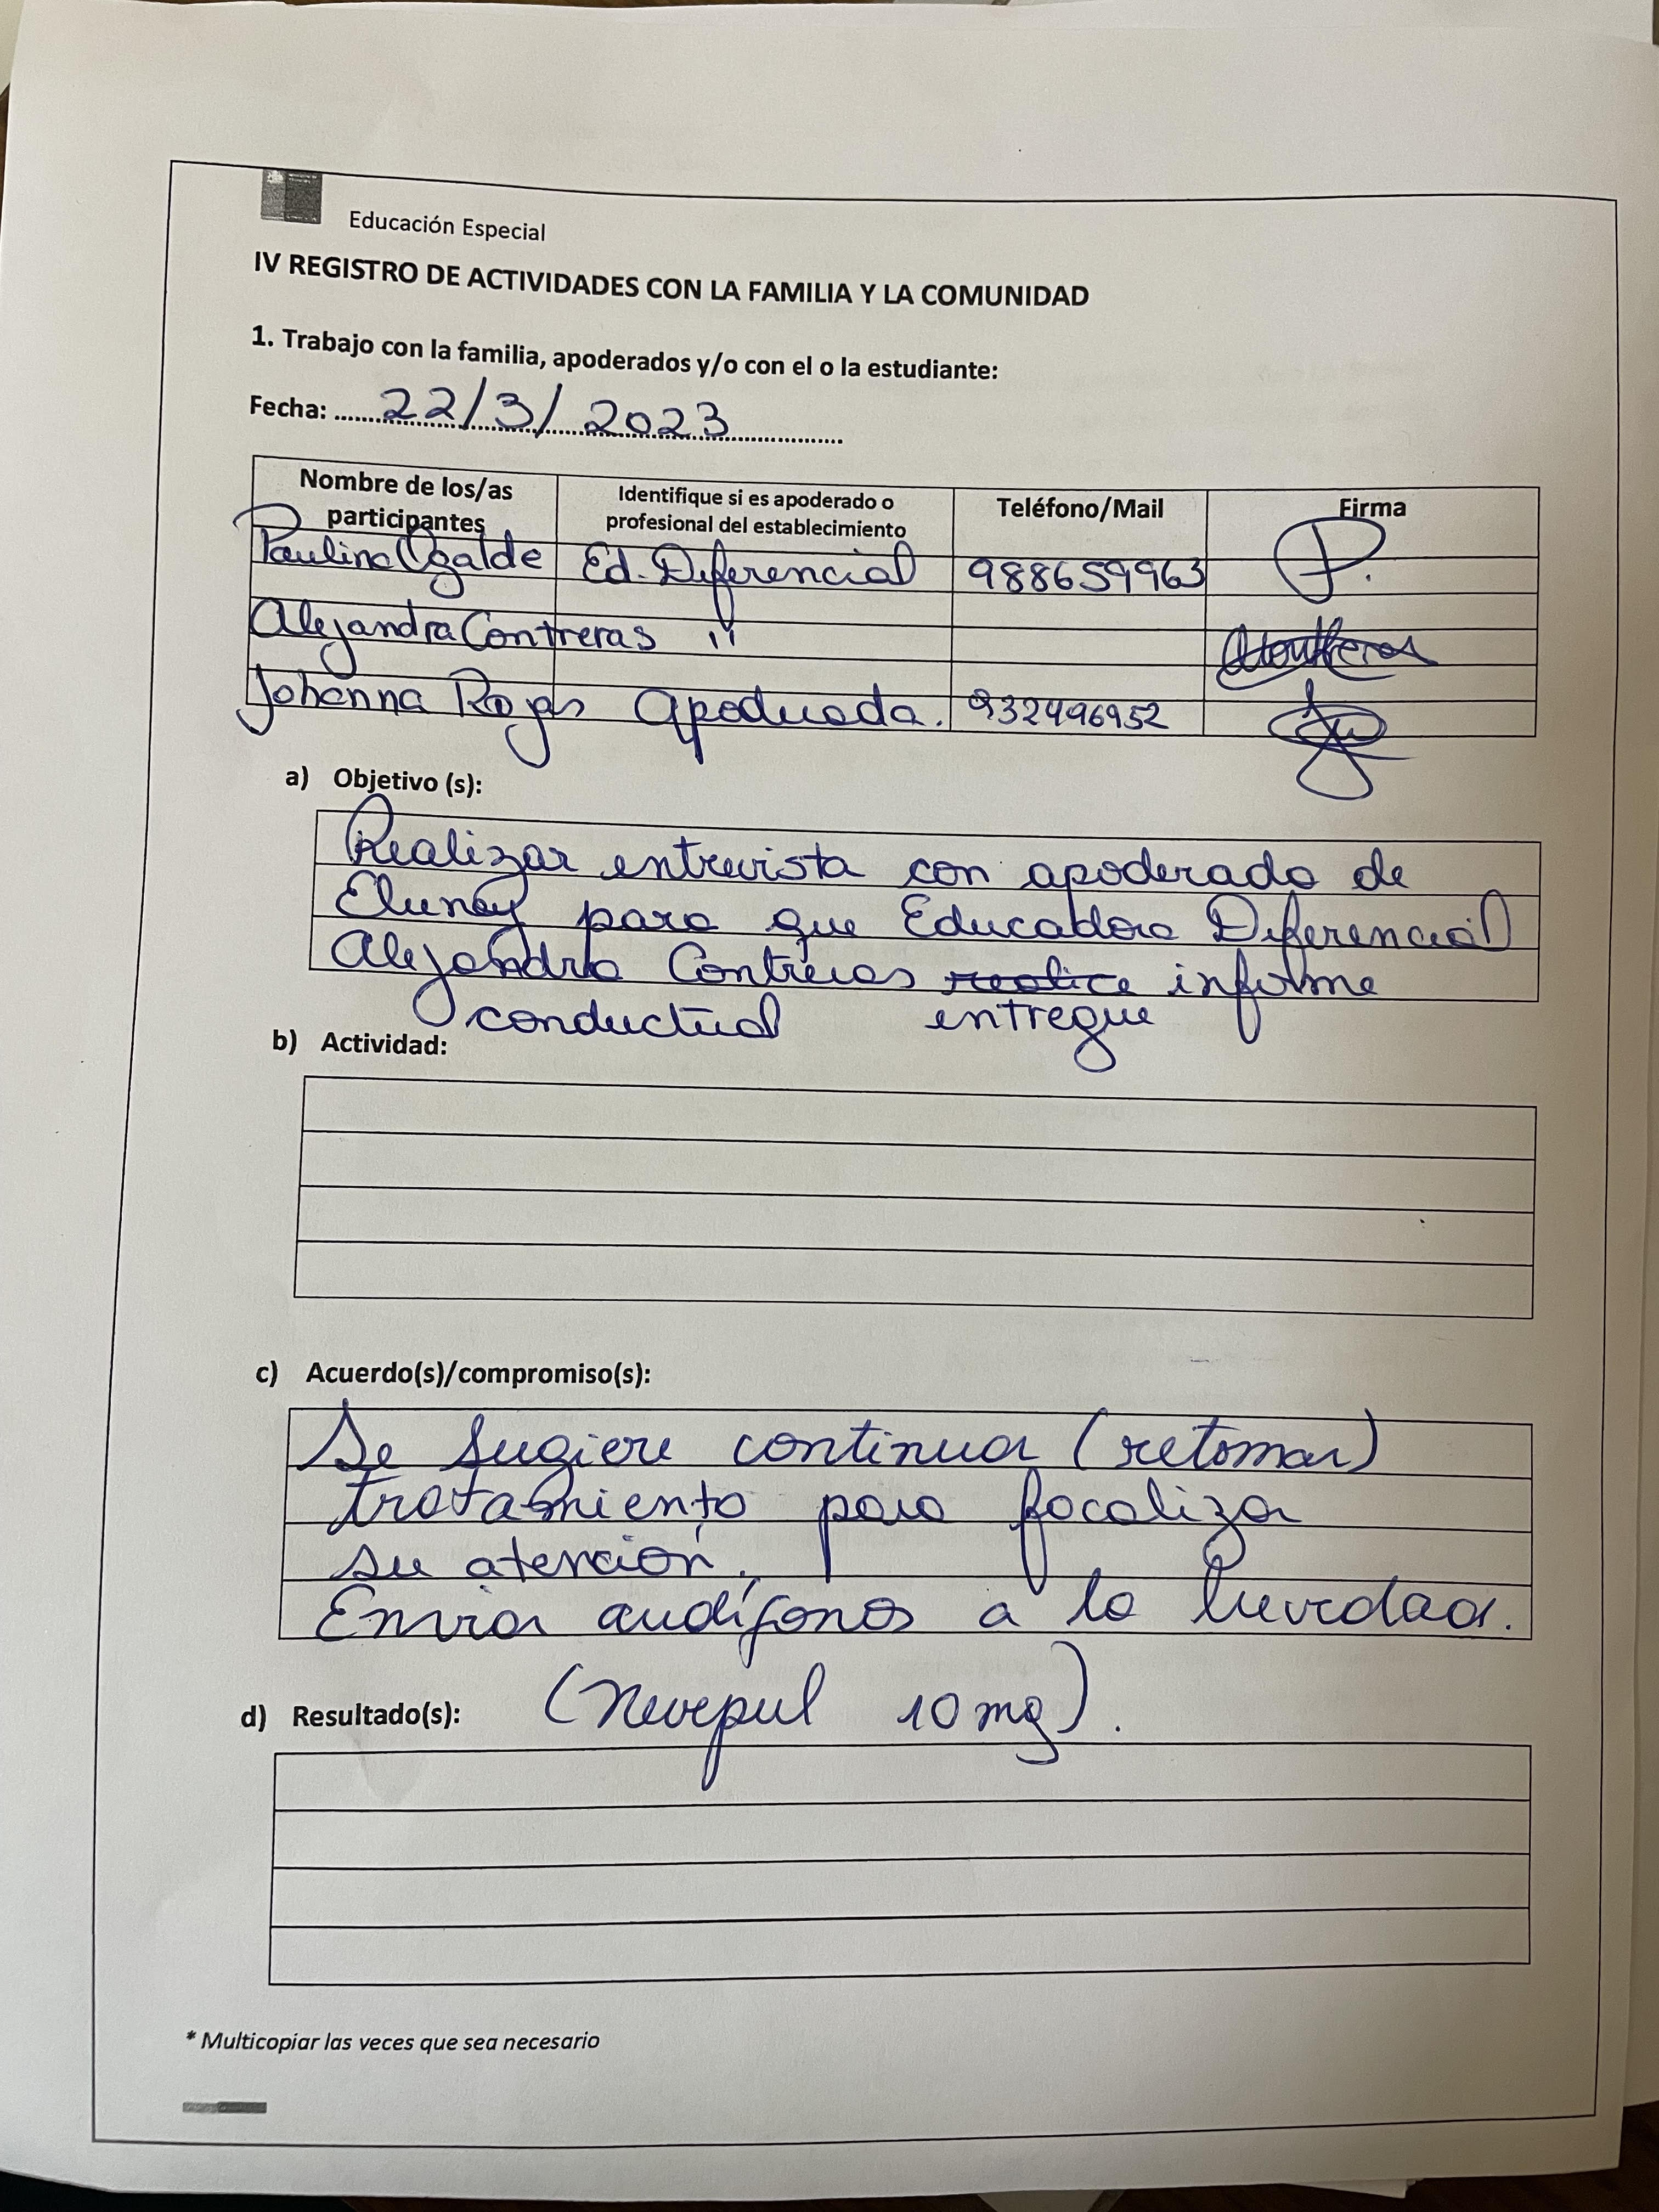 Educación Especial
IV REGISTRO DE ACTIVIDADES CON LA FAMILIA Y LA COMUNIDAD
1. Trabajo con la familia, apoderados y/o con el o la estudiante:
Fecha: 22/3/2023
Nombre de los/as participantes Identifique si es apoderado o profesional del establecimiento Teléfono/Mail Firma
Paulina Ogalde Ed. Diferencial 988659963 P.
Alejandra Contreras "
Johanna Rojas Apoderada. 932496952
a) Objetivo (s):
Realizar entrevista con apoderado de
Elunay para que Educadora Diferencial
Alejandra Contreras realice informe
conductual entregue
b) Actividad:
c) Acuerdo(s)/compromiso(s):
Se sugiere continuar (retomar)
tratamiento para focalizar
su atención.
Enviar audífonos a la brevedad.
d) Resultado(s): 10 mg).
* Multicopiar las veces que sea necesario